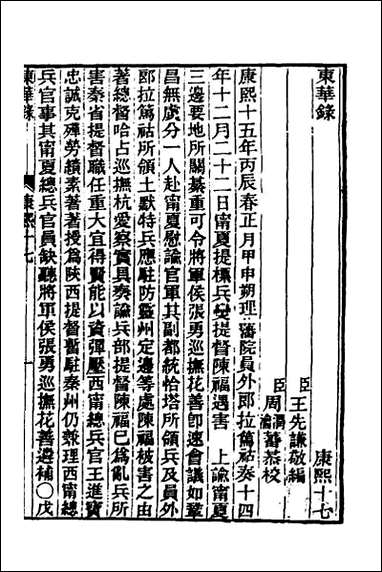 東華錄 康熙十七
臣王先謙敬編
臣周潤蕃周瀹蕃恭校
康熙十五年丙辰春正月甲申朔理藩院員外郎拉篤祜奏十四
年十二月二十二日甯夏提標兵變提督陳福遇害 上諭甯夏
三邊要地所關綦重可令將軍侯張勇巡撫花善卽速會議如鞏
昌無虞分一人赴甯夏慰諭官軍其副都統恰塔所領兵及員外
郎拉篤祜所領土默特兵應駐防靈州定邊等處陳福被害之由
著總督哈占巡撫杭愛察實具奏諭兵部提督陳福已爲亂兵所
害秦省提督職任重大宜得賢能以資彈壓西甯總兵官王進寶
忠誠克殫勞績素著著授爲陝西提督暫駐秦州仍兼理西甯總
兵官事其甯夏總兵官員缺聽將軍侯張勇巡撫花善遴補〇戊
東華錄 康熙十七